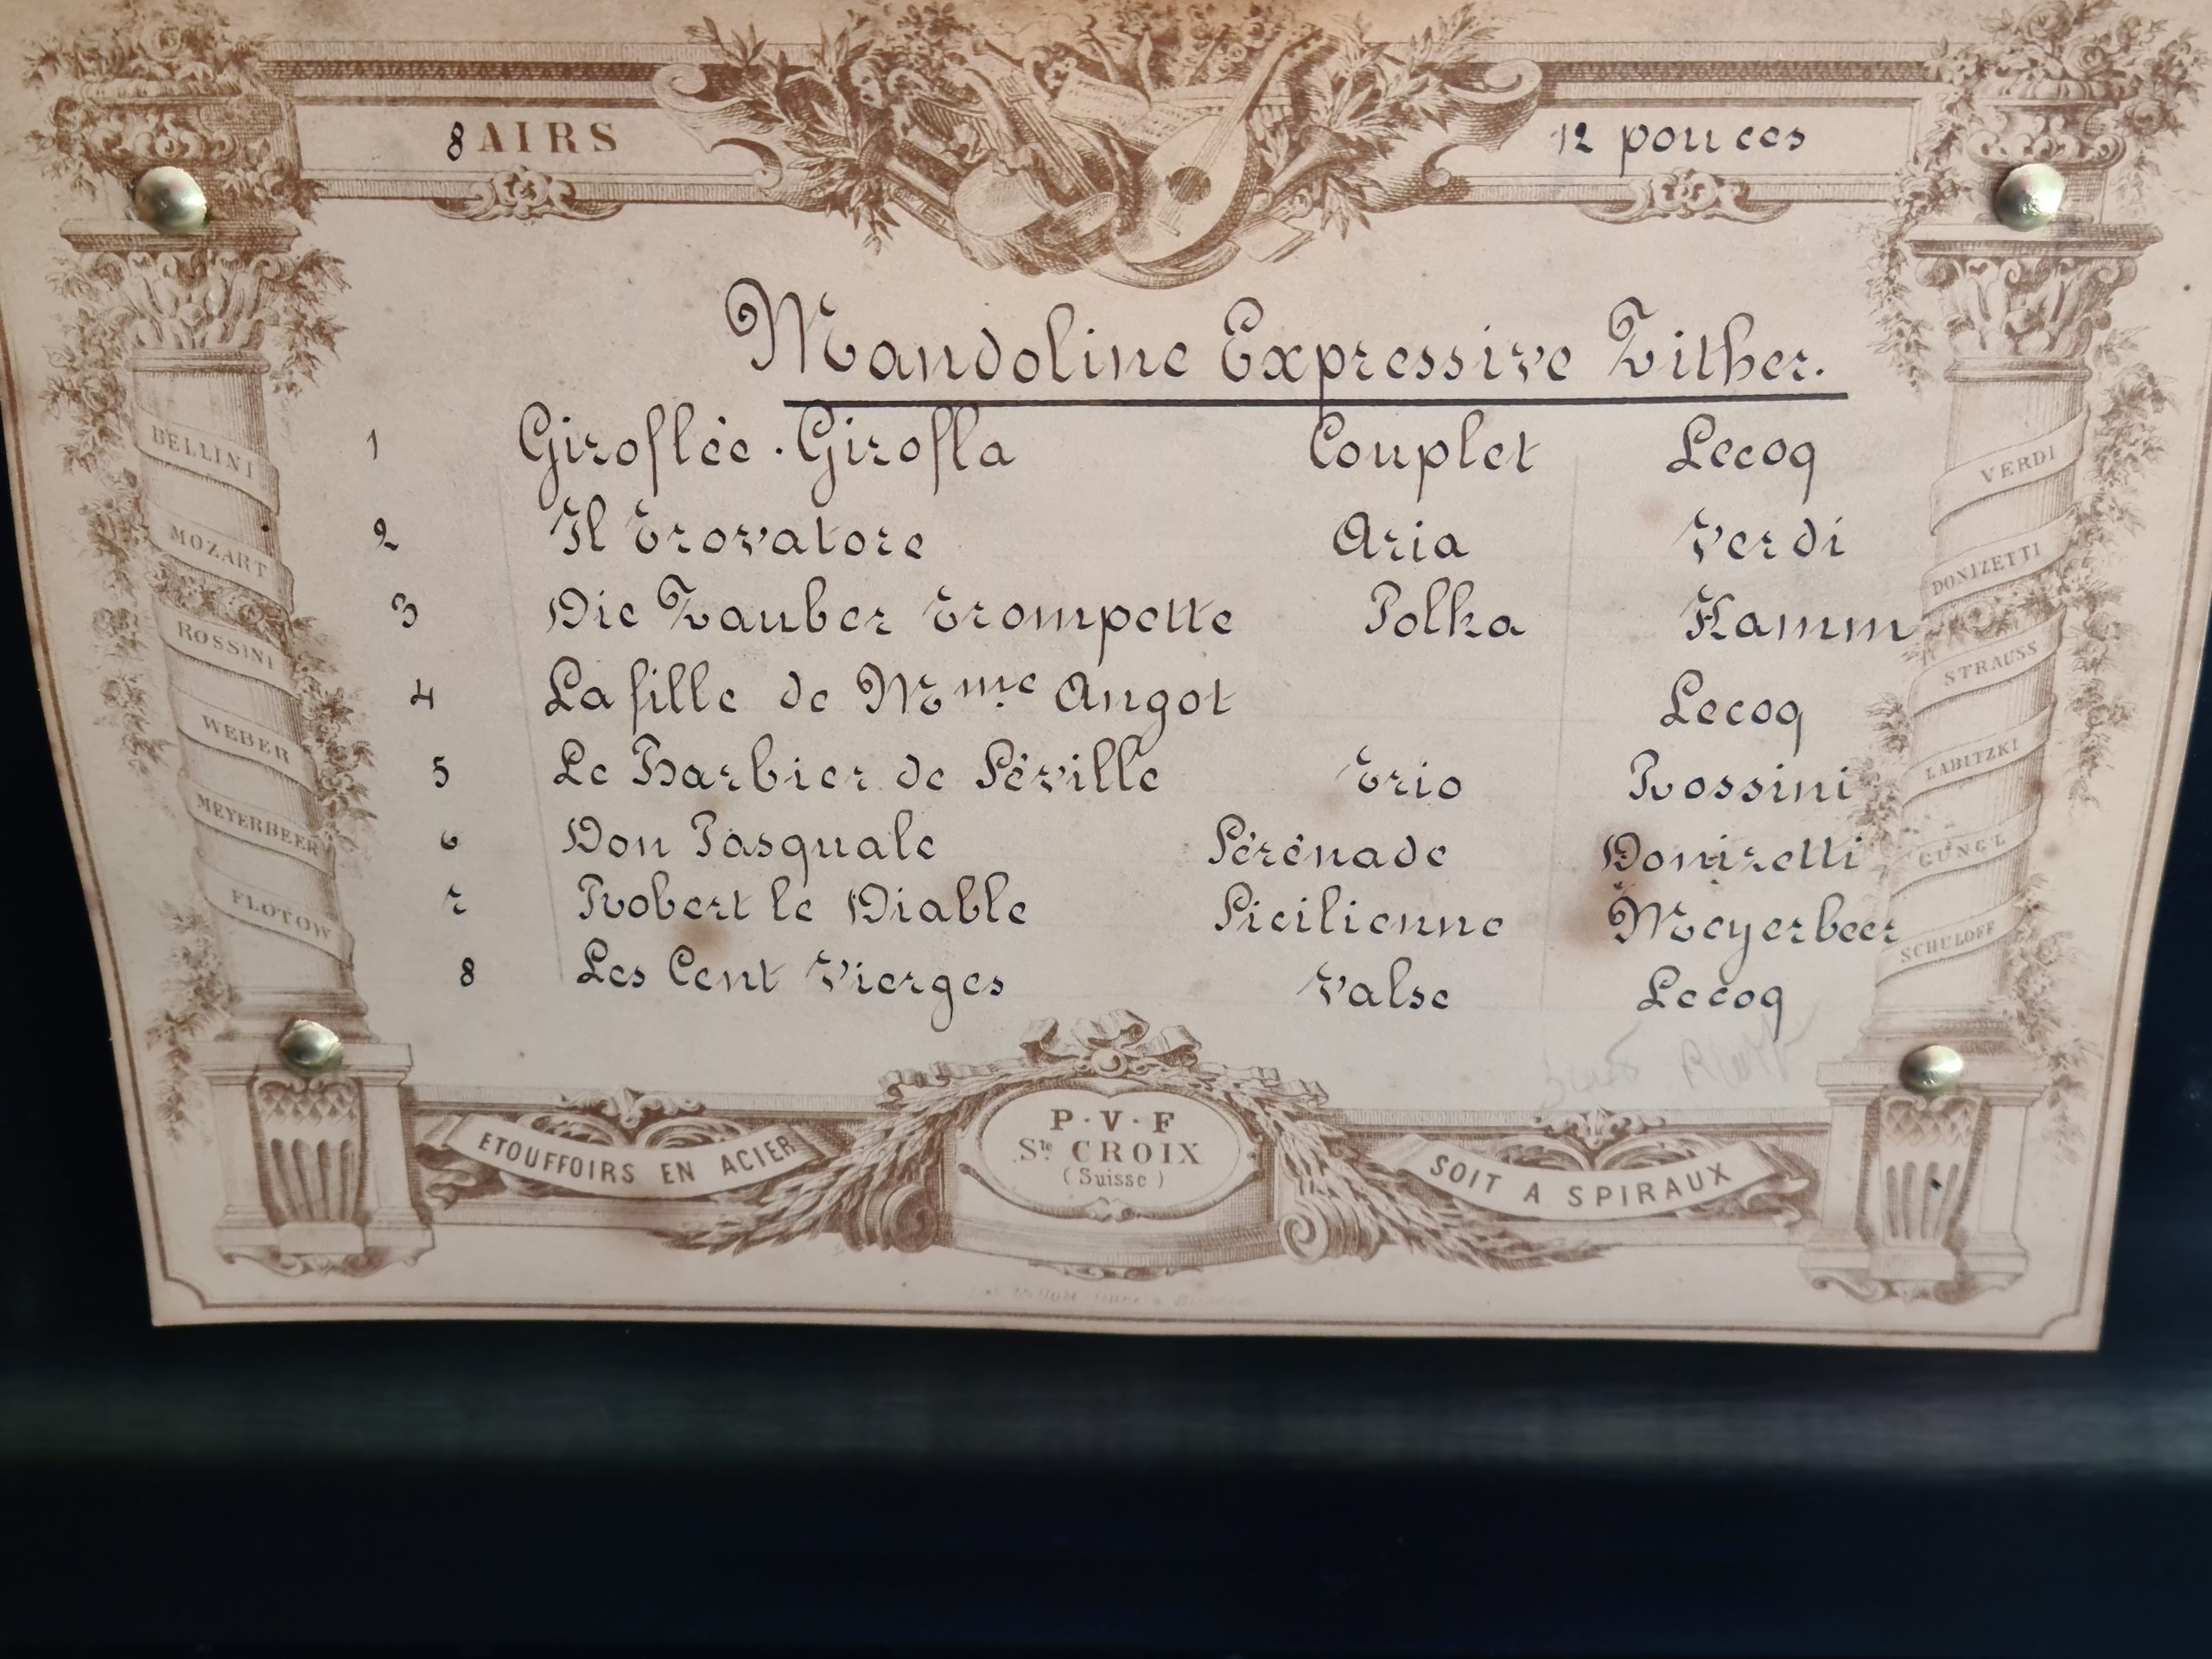 8 AIRS
12 pouces
Mandoline Expressive Zither.
1 Giroflée . Girofla Couplet Lecoq
2 Il Trovatore Aria Verdi
3 Die Zauber Trompette Polka Kamm
4 La fille de Mme Angot Lecoq
5 Le Barbier de Séville Trio Rossini
6 Don Pasquale Sérénade Donizetti
7 Robert le Diable Sicilienne Meyerbeer
8 Les Cent Vierges Valse Lecoq
BELLINI
MOZART
ROSSINI
WEBER
MEYERBEER
FLOTOW
VERDI
DONIZETTI
STRAUSS
LABITZKI
GUNG'L
SCHULOFF
ETOUFFOIRS EN ACIER
P·V·F
Ste CROIX
(Suisse)
SOIT A SPIRAUX